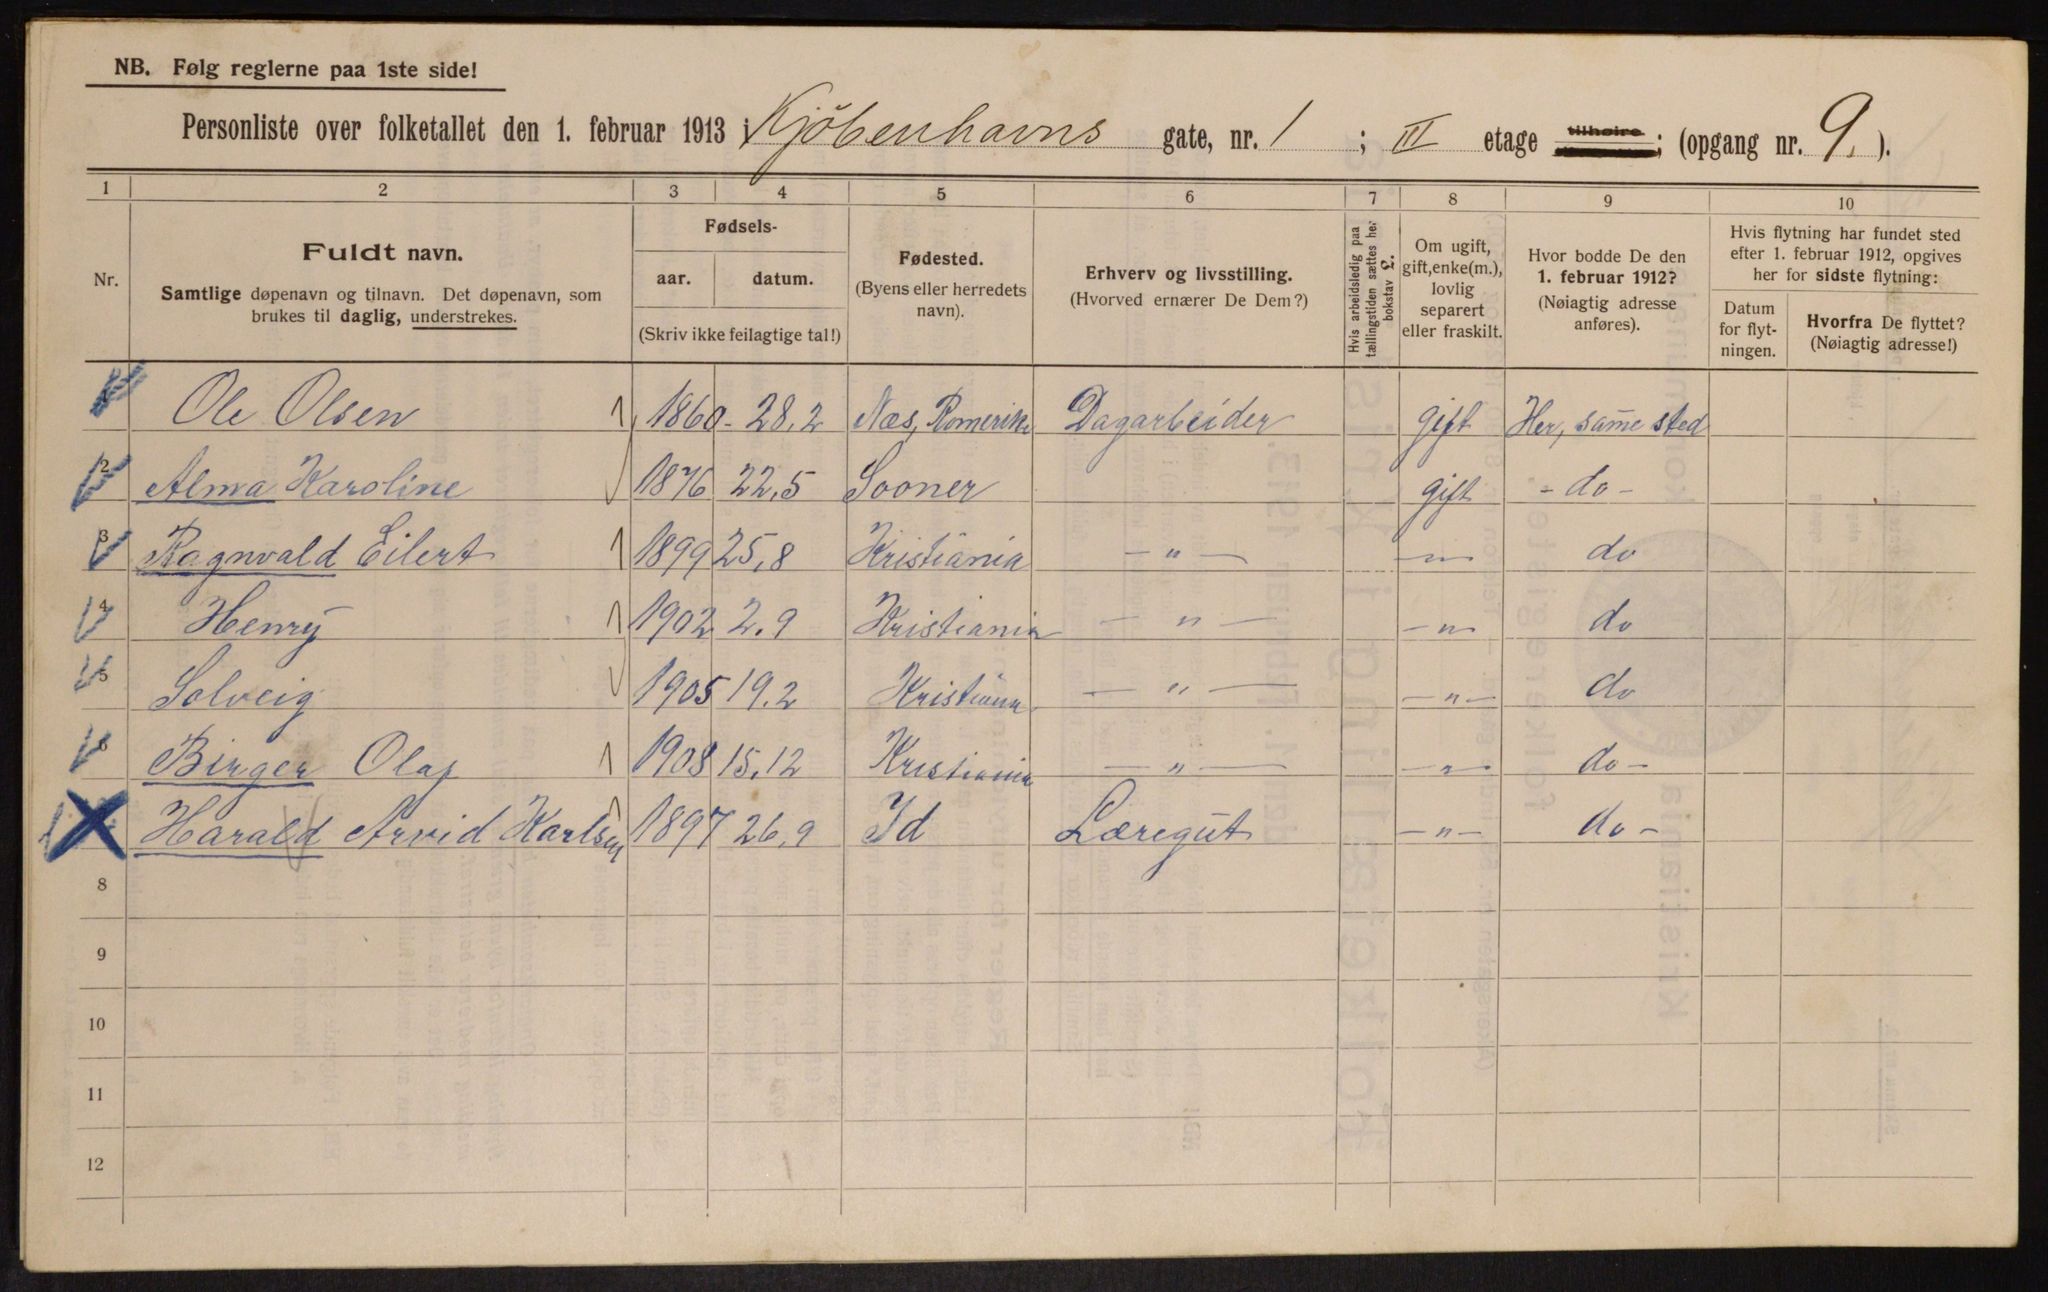 NB. Følg reglerne paa 1ste side!
Personliste over folketallet den 1. februar 1913 i Kjöbenhavns gate, nr. 1 ; III etage tilhøire ; (opgang nr. 9. ).
1 2 3 4 5 6 7 8 9 10
Nr.
Fuldt navn.
Samtlige døpenavn og tilnavn. Det døpenavn, som
brukes til daglig, understrekes.
Fødsels-
aar. datum.
(Skriv ikke feilagtige tal!)
Fødested.
(Byens eller herredets
navn).
Erhverv og livsstilling.
(Hvorved ernærer De Dem?)
Hvis arbeidsledig paa
tællingstiden sættes her
bokstav L.
Om ugift,
gift, enke(m.),
lovlig
separert
eller fraskilt.
Hvor bodde De den
1. februar 1912?
(Nøiagtig adresse
anføres).
Hvis flytning har fundet sted
efter 1. februar 1912, opgives
her for sidste flytning:
Datum
for flyt-
ningen.
Hvorfra De flyttet?
(Nøiagtig adresse!)
Ole Olsen 1860 - 28.2 Næs, Romerike Dagarbeider gift Her, samme sted
2 Alma Karoline 1876 22.5 Sooner gift - do -
3 Ragnvald Eilert 1 1899 25.8 Kristiania — " — — " — do
4 Henry 1 1902 2.9 Kristiania — " — — " — do
5 Solveig 1905 19.2 Kristiania — " — — " — do
6 Birger Olaf 1 1908 15.12 Kristiania — " — — " — do -
Harald Arvid Karlsen 1897 26.9 Id Læregut — " — do -
8
9
10
11
12